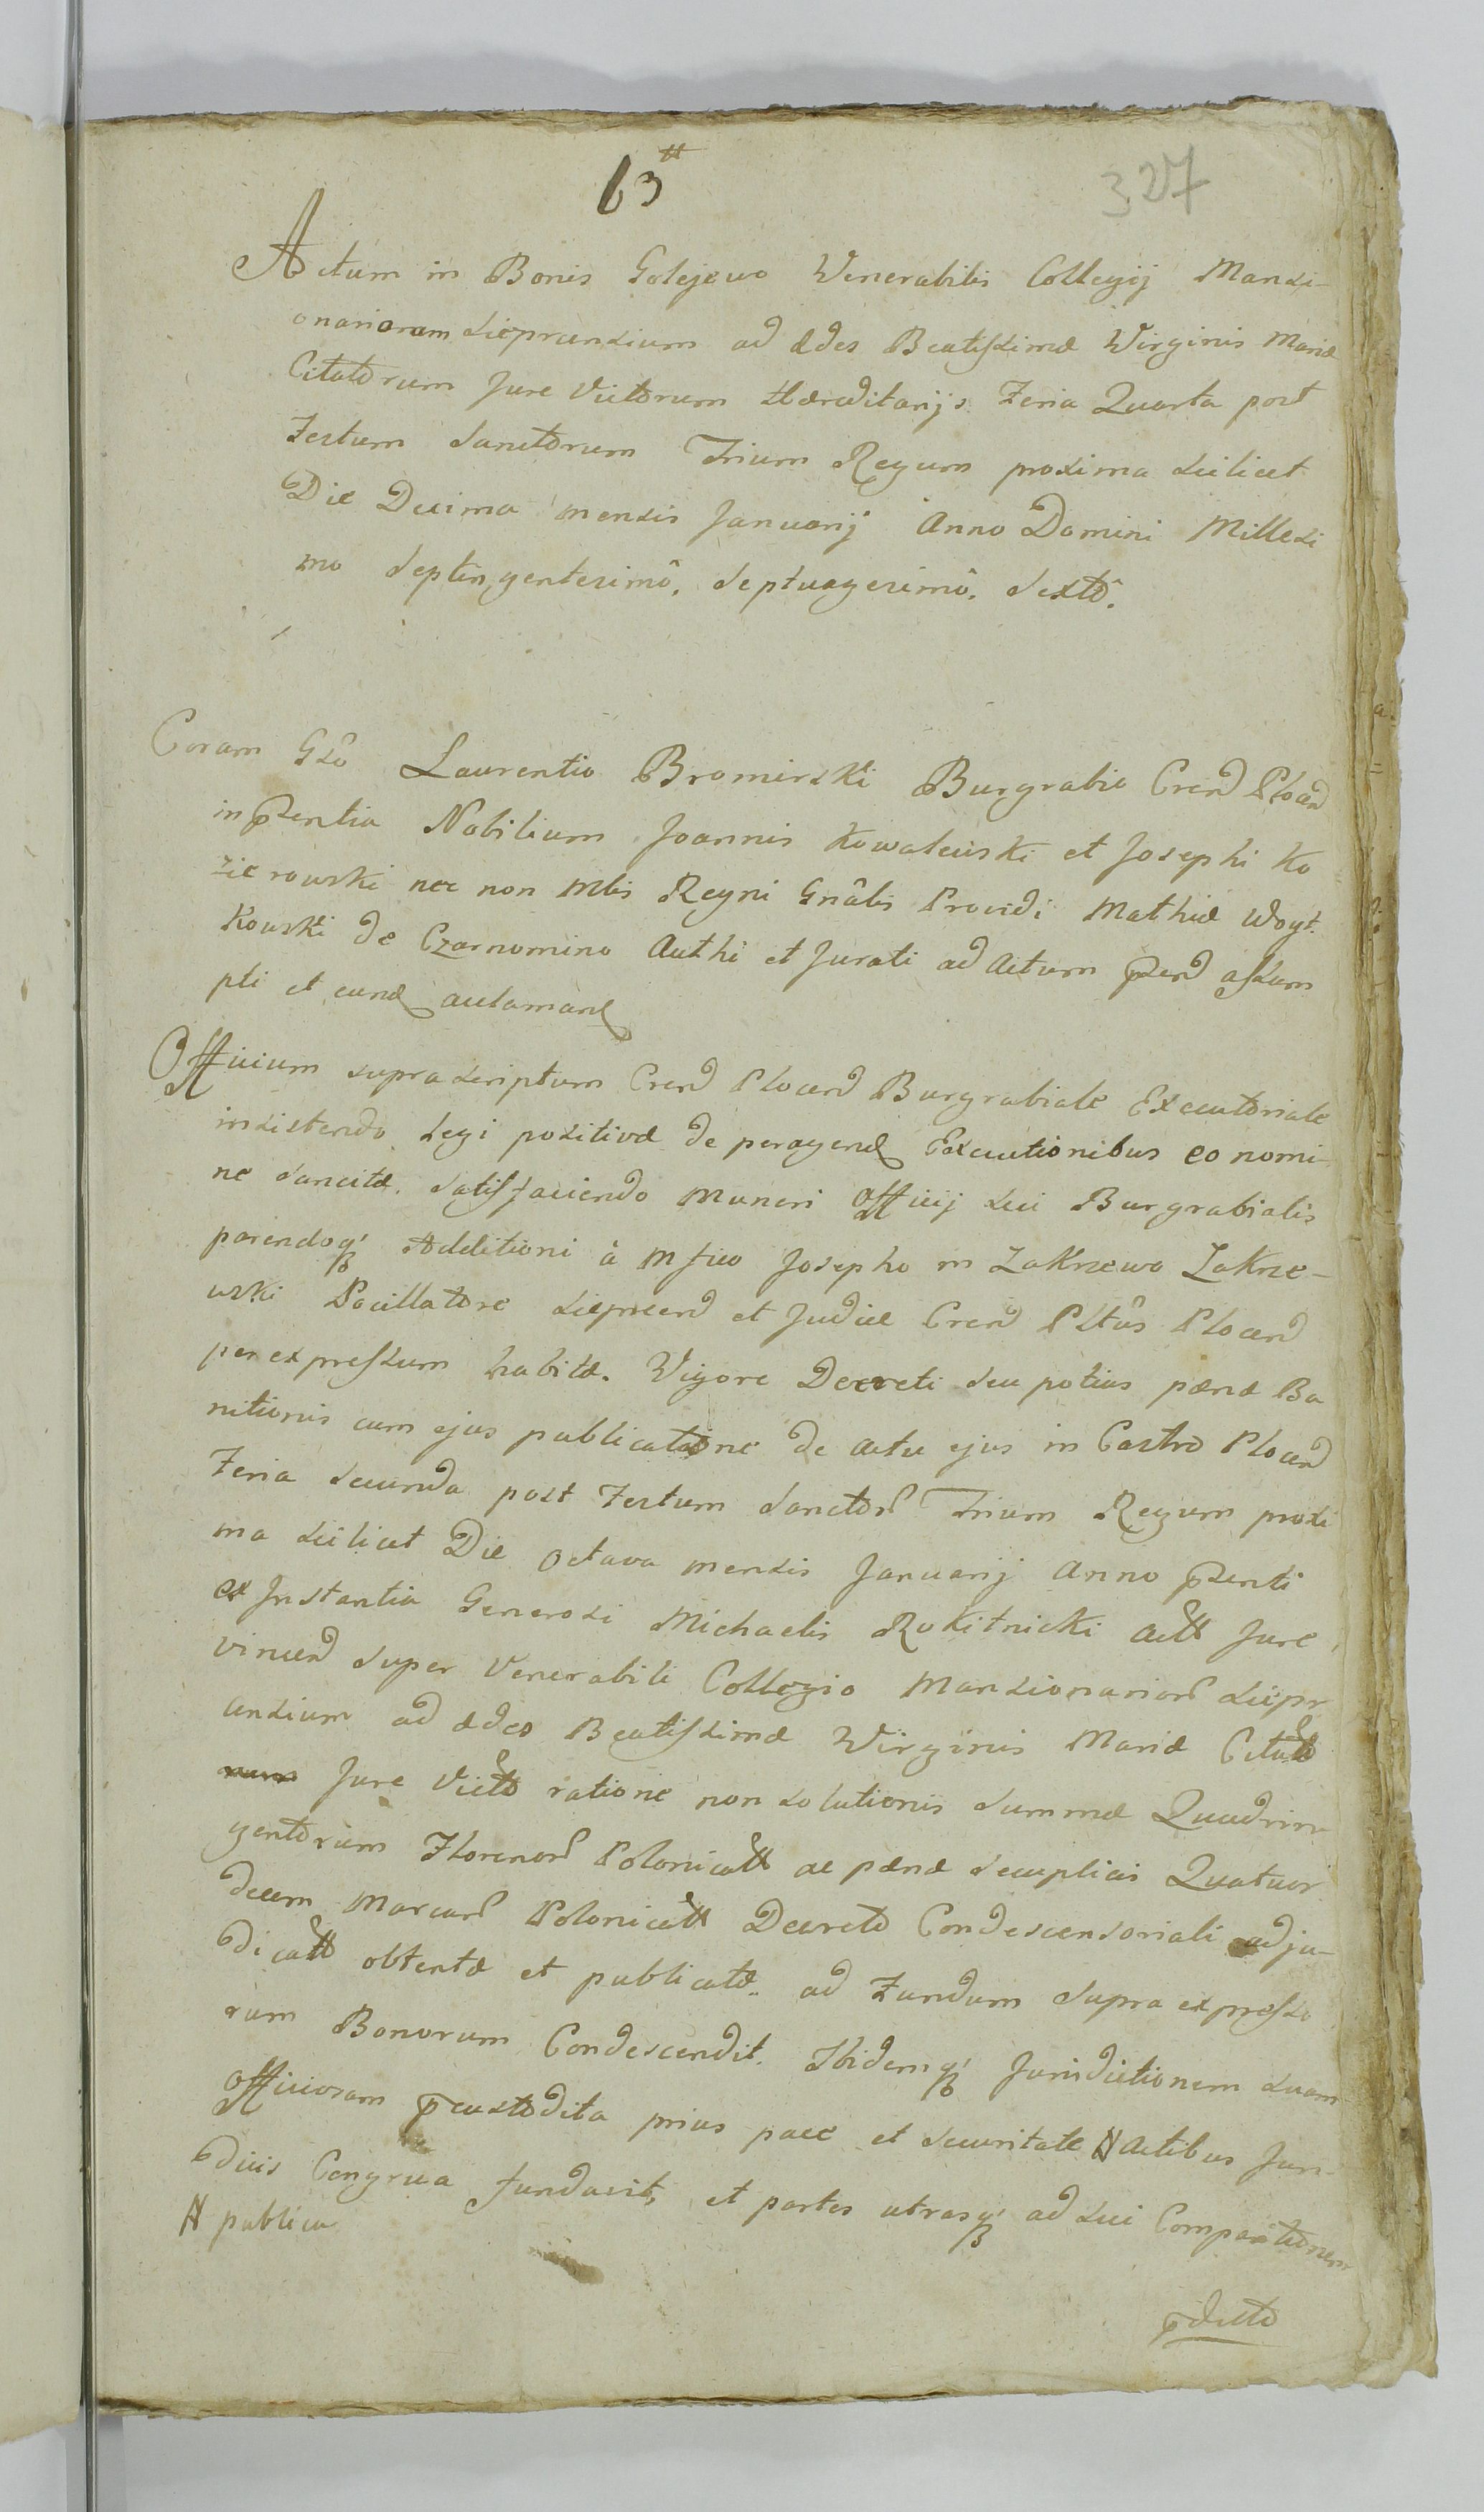 63tt
327
Actum in Bonis Golejewo Venerabilis Collegij Mansi-
onariorum Sieprcensium ad Ædes Beatissimæ Virginis Mariæ
Citatorum Jure Victorum Hæreditarijs Feria Quarta post
Festum Sanctorum Trium Regum proxima scilicet
Die Decima mensis Januarij Anno Domini Millesi
mo Septingentesimô, Septuagesimô, Sextô.
Coram Gsô Laurentio Bromirski Burgrabio Crend Plocend
in pzentia Nobilium Joannis Kowalewski et Josephi Ko
zierowski nec non Mlis Regni Gnâlis Providi Mathiæ Woyt.
kowski de Czarnomino Authi et Jurati ad Actum pzend assum
pti et eund acclamand
Officium suprascriptum Crend Plocend Burgrabiale Executoriale
insistendo Legi positivæ de peragend Executionibus eo nomi-
ne sancitæ. Satisfaciendo muneri Officij sui Burgrabialis
parendoq' Additioni à Mfico Josepho in Zakrzewo Zakrze-
wski Pocillatore Sieprcend et Judice Crend Pltûs Plocend
per expressum habitæ. Vigore Decreti seu potius pænæ Ba
nitionis cum ejus publicatione de actu ejus in Castro Plocend
Feria Secunda post Festum Sanctor Trium Regum proxi
ma scilicet Die Octava mensis Januarij Anno pzenti
ex Instantia Generosi Michaelis Rokitnicki Actt Jure
vincend super Venerabili Collegio Mansionarior Siepr
censium ad Ædes Beatissimæ Virginis Mariæ Citatt
Jure Victt ratione non solutionis Summæ Quadrin
gentorum Florenor Polonicatt ac pænæ Sexuplicis Quatuor
decem Marcar Polonicatt Decreto Condescensoriali adju-
dicatt obtentæ et publicatæ. ad Fundum supra expresso
rum Bonorum Condescendit. Ibidemq' Jurisdictionem suam
Officiosam pcustodita prius pace et securitate # Actibus Juri
dicis Congrua fundavit, et partes utrasq' ad sui Comparitionem
# publica
pdicto